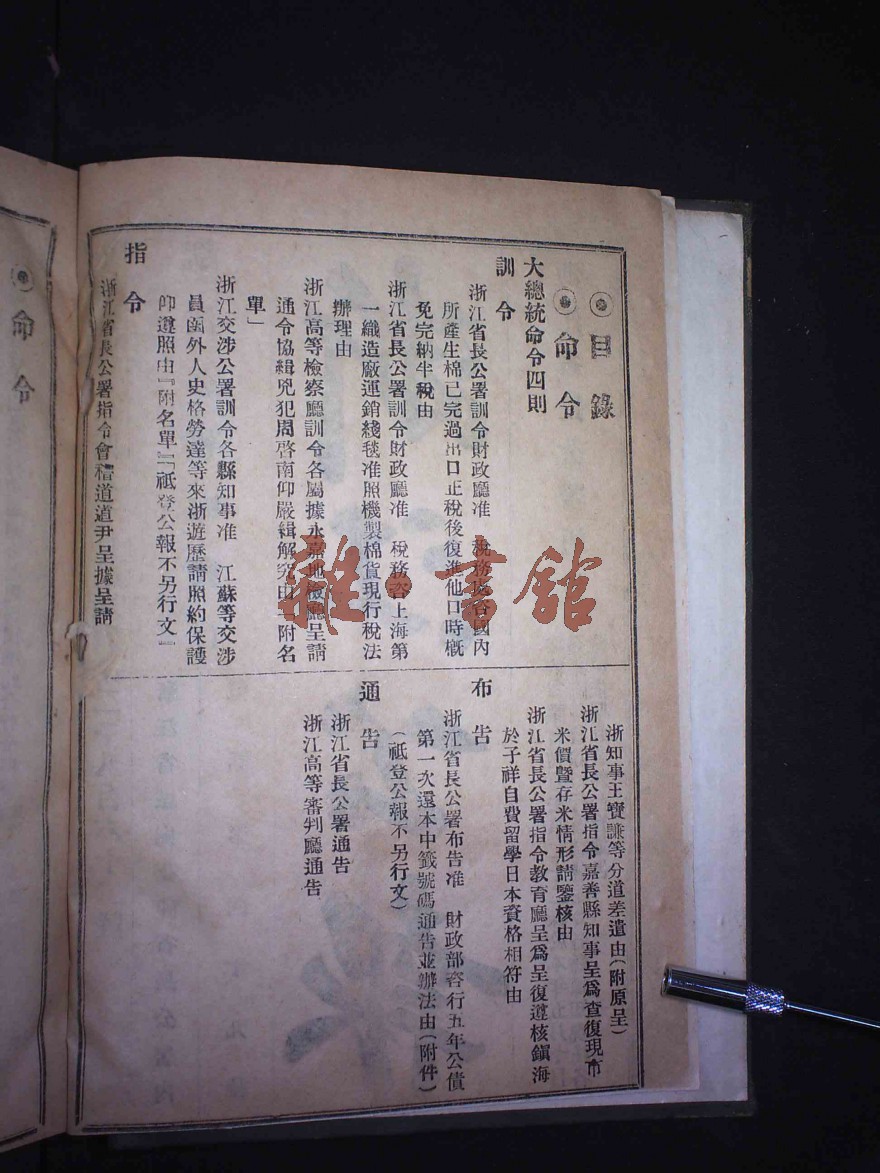 目錄
命令
大總統命令四則
訓令
浙江省長公署訓令財政廳准 稅務處咨國內
所產生棉已完過出口正稅後復進他口時概
免完納半稅由
浙江省長公署訓令財政廳准 稅務咨上海第
一織造廠運銷綫毯准照機製棉貨現行稅法
辦理由
浙江高等檢察廳訓令各屬據永嘉地檢廳呈請
通令協緝兇犯周啓南仰嚴緝解究由「附名
單」
浙江交涉公署訓令各縣知事准 江蘇等交涉
員函外人史格勞達等來浙遊歷請照約保護
仰遵照由『附名單』『祗登公報不另行文』
指令
浙江省長公署指令會稽道道尹呈據呈請
浙知事王寶謙等分道差遣由(附原呈)
浙江省長公署指令嘉善縣知事呈爲查復現市
米價曁存米情形請鑒核由
浙江省長公署指令教育廳呈爲呈復遵核鎭海
於子祥自費留學日本資格相符由
布告
浙江省長公署布告准 財政部咨行五年公債
第一次還本中籤號碼通告並辦法由(附件)
(祗登公報不另行文)
通告
浙江省長公署通告
浙江高等審判廳通告
命令
雜·書舘